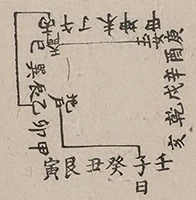 午丁未坤申
巳巽辰乙卯甲
庚酉辛戌乾亥
寅艮丑癸子壬
日